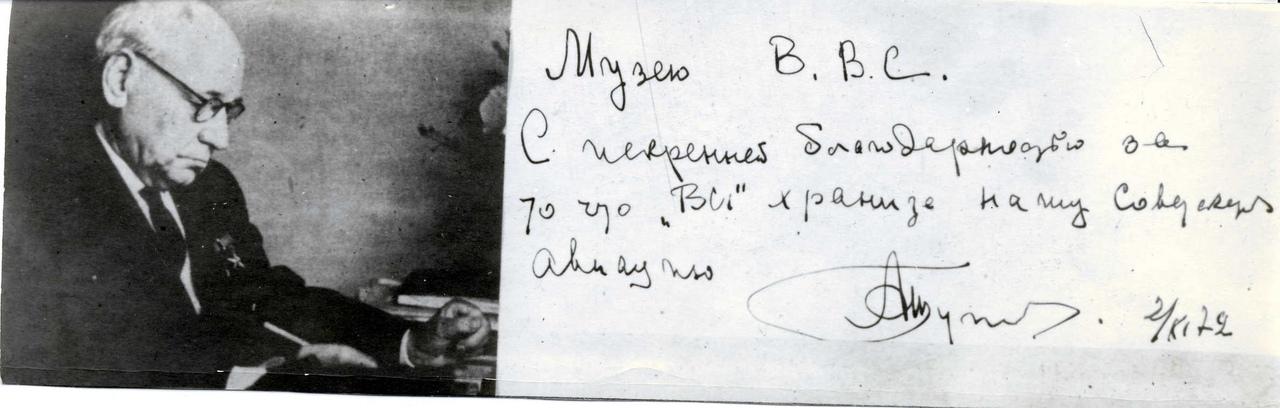 Музею В.В.С.
С искренней благодарностью за
то что „ВСѢ" храните нашу Советскую
Авиацию
АТуполев. 2/XI 72